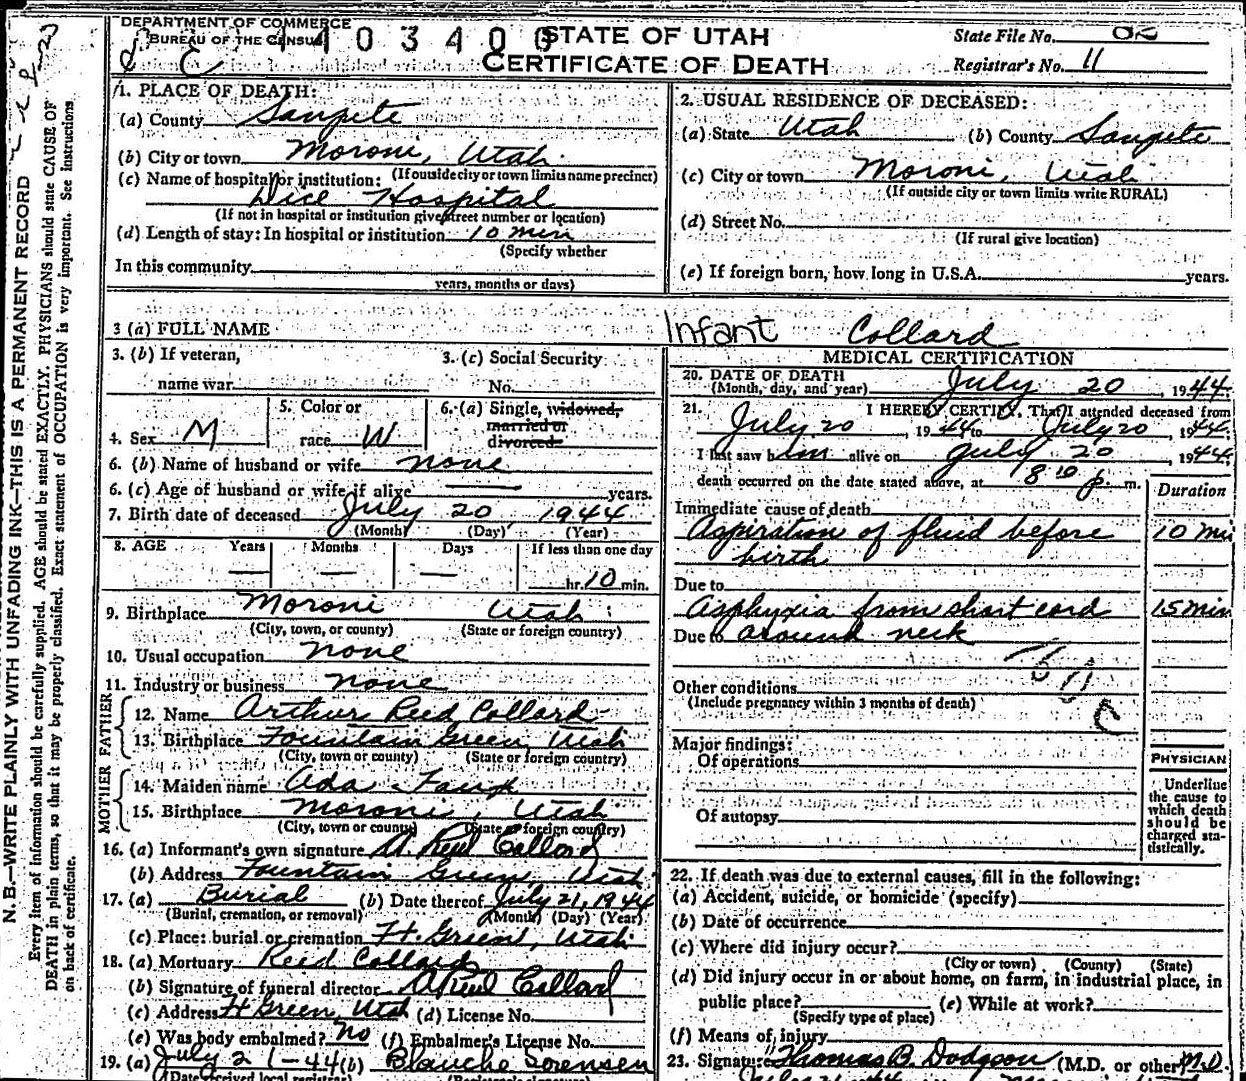 DEPARTMENT OF COMMERCE
BUREAU OF THE CENSUS
103400
STATE OF UTAH
CERTIFICATE OF DEATH
State File No. 82
Registrar's No. 11
N.B.—WRITE PLAINLY WITH UNFADING INK—THIS IS A PERMANENT RECORD
Every item of information should be carefully supplied. AGE should be stated EXACTLY. PHYSICIANS should state CAUSE OF
DEATH in plain terms, so that it may be properly classified. Exact statement of OCCUPATION is very important. See instructions
on back of certificate.
1. PLACE OF DEATH:
(a) County Sanpete
(b) City or town Moroni, Utah
(If outside city or town limits name precinct)
(c) Name of hospital or institution:
Dice Hospital
(If not in hospital or institution give street number or location)
(d) Length of stay: In hospital or institution 10 min
(Specify whether
In this community
years, months or days)
2. USUAL RESIDENCE OF DECEASED:
(a) State Utah (b) County Sanpete
(c) City or town Moroni, Utah
(If outside city or town limits write RURAL)
(d) Street No.
(If rural give location)
(e) If foreign born, how long in U.S.A. years.
3 (a) FULL NAME Infant Collard
3. (b) If veteran,
name war
3. (c) Social Security
No.
4. Sex M
5. Color or
race W
6. (a) Single, widowed,
married or
divorced
6. (b) Name of husband or wife none
6. (c) Age of husband or wife if alive years.
7. Birth date of deceased July 20 1944
(Month) (Day) (Year)
8. AGE Years Months Days If less than one day
— — — hr. 10 min.
9. Birthplace Moroni Utah
(City, town, or county) (State or foreign country)
10. Usual occupation none
11. Industry or business none
FATHER
12. Name Arthur Reed Collard
13. Birthplace Fountain Green, Utah
(City, town or county) (State or foreign country)
MOTHER
14. Maiden name Ada
15. Birthplace Moroni, Utah
(City, town or county) (State or foreign country)
16. (a) Informant's own signature A. Reed Collard
(b) Address Fountain Green, Utah
17. (a) Burial (b) Date thereof July 21, 1944
(Burial, cremation, or removal) (Month) (Day) (Year)
(c) Place: burial or cremation Ft. Green, Utah
18. (a) Mortuary Reed Collard
(b) Signature of funeral director A Reed Collard
(c) Address Ft Green, Utah (d) License No.
(e) Was body embalmed? no (f) Embalmer's License No.
19. (a) July 21-44 (b) Blanche Sorensen
(Date received local registrar) (Registrar's signature)
MEDICAL CERTIFICATION
20. DATE OF DEATH
(Month, day, and year) July 20, 1944
21. I HEREBY CERTIFY, That I attended deceased from
July 20, 1944 to July 20, 1944.
I last saw him alive on July 20, 1944.
death occurred on the date stated above, at 8 10 p. m.
Duration
Immediate cause of death
Aspiration of fluid before 10 min
birth
Due to
Asphyxia from short cord 15 min
Due to around neck
Other conditions
(Include pregnancy within 3 months of death)
Major findings:
Of operations
Of autopsy
PHYSICIAN
Underline
the cause to
which death
should be
charged sta-
tistically.
22. If death was due to external causes, fill in the following:
(a) Accident, suicide, or homicide (specify)
(b) Date of occurrence
(c) Where did injury occur?
(City or town) (County) (State)
(d) Did injury occur in or about home, on farm, in industrial place, in
public place? (e) While at work?
(Specify type of place)
(f) Means of injury
23. Signature Thomas B. Dodgson (M.D. or other) M.D.